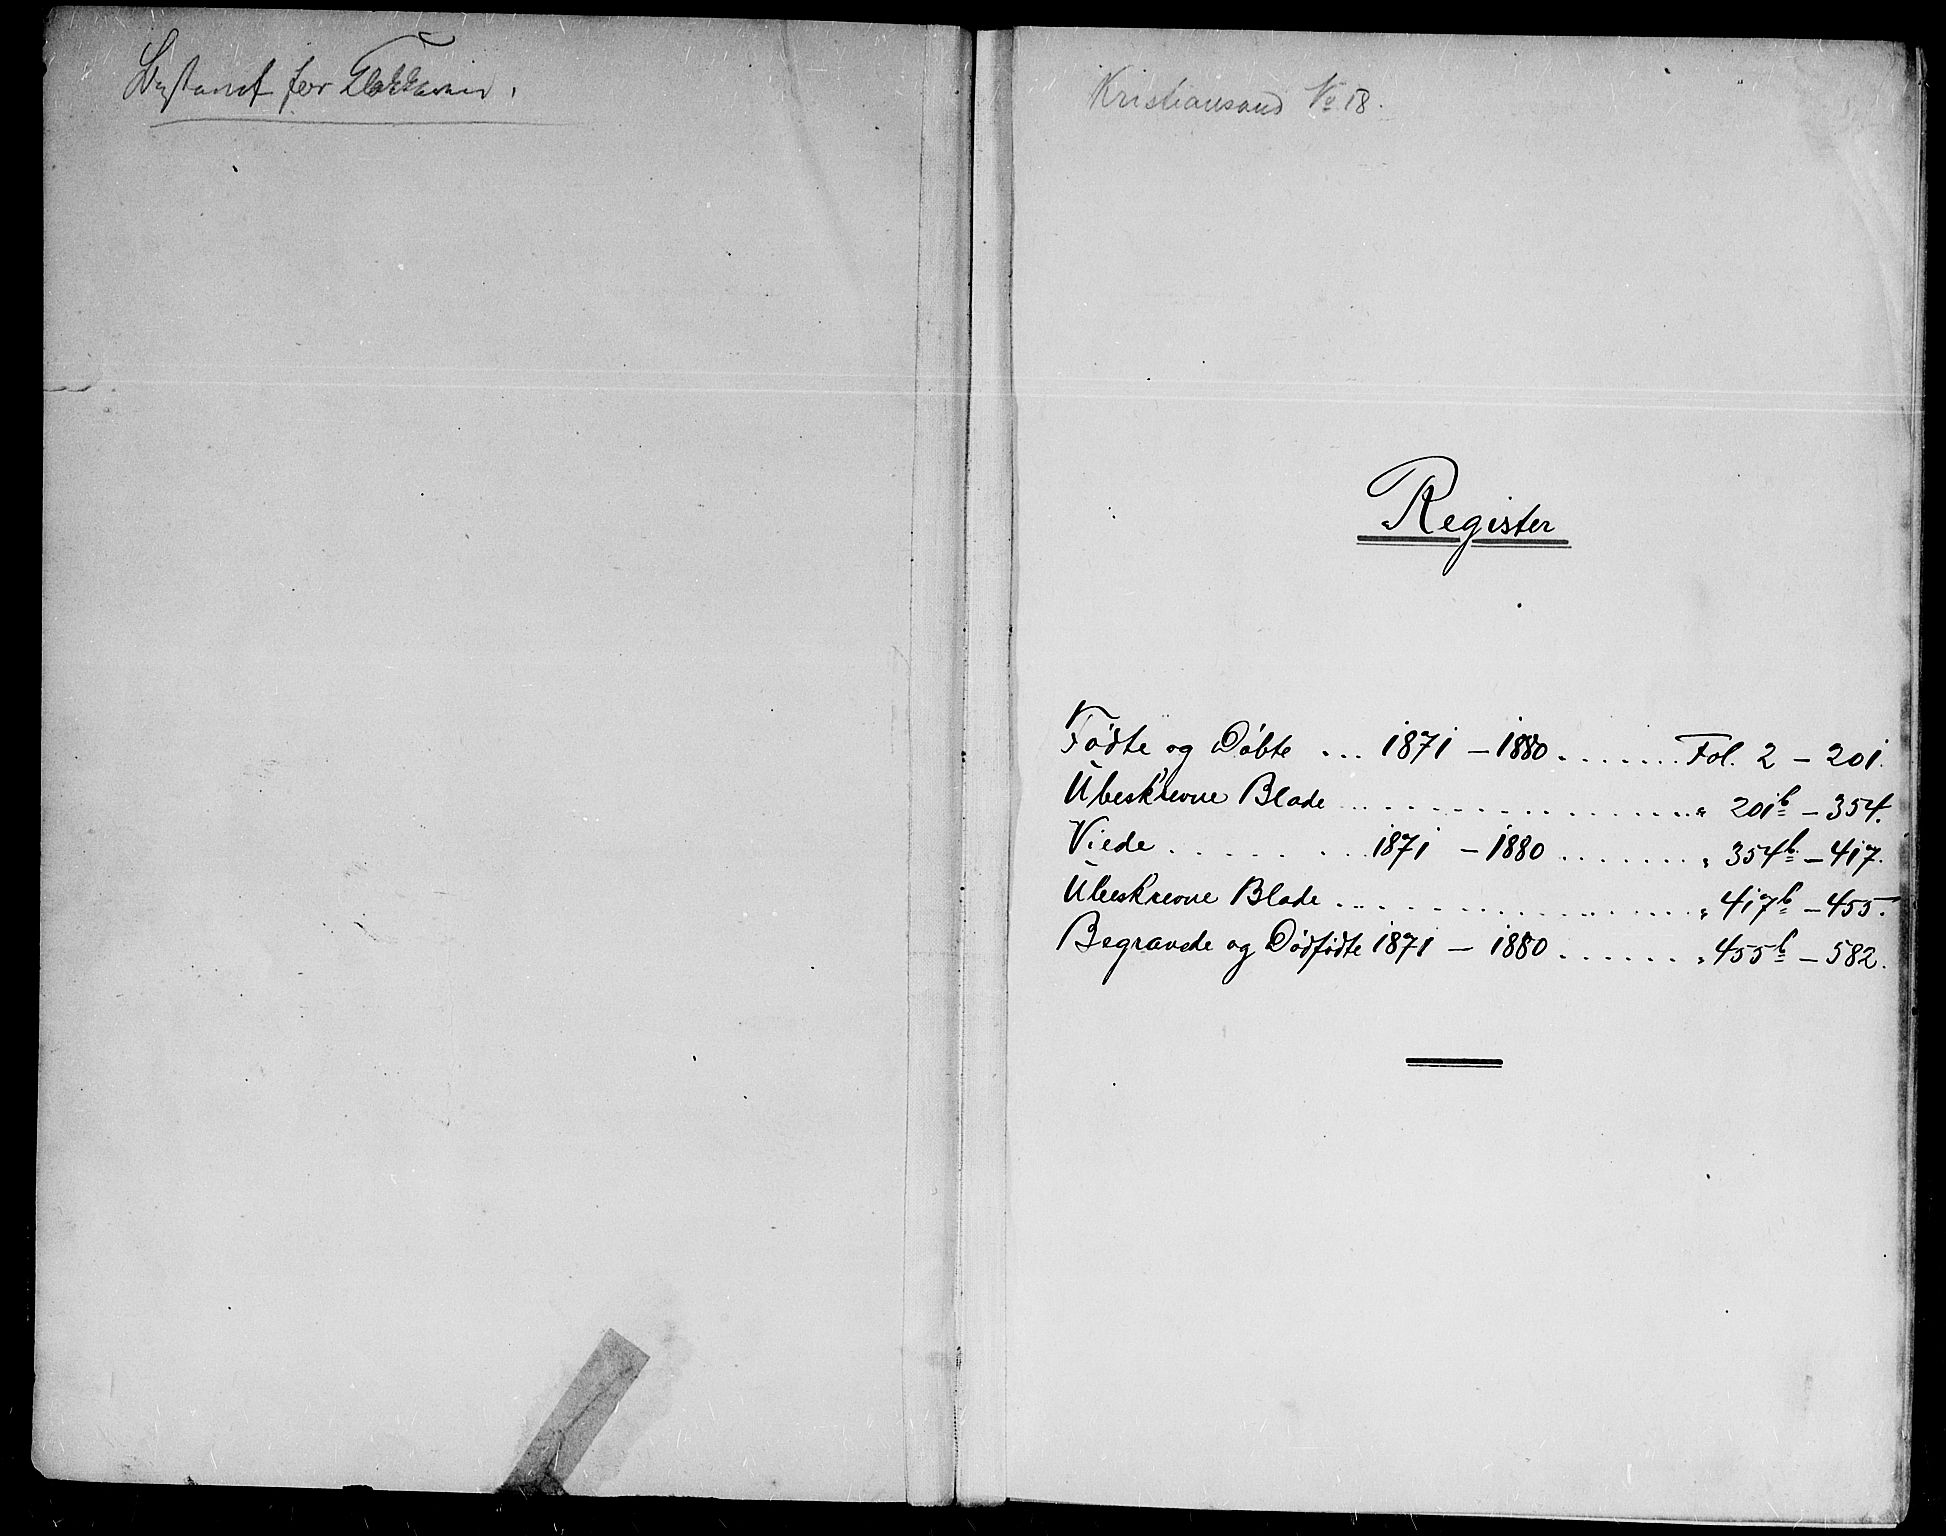 for
Kristiansand No 18.
Register
Fødte og Døbte ... 1871 - 1880 ....... Fol. 2 - 201.
Ubeskrevne Blade .................. " 201b - 354.
Viede ......... 1871 - 1880 ....... " 354b - 417.
Ubeskrevne Blade .................. " 417b - 455.
Begravede og Dødfødte 1871 - 1880 ....... " 455b - 582.